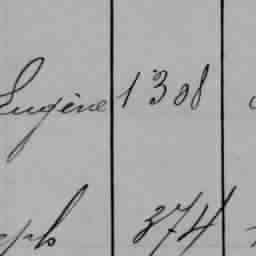 Eugène 1308
374